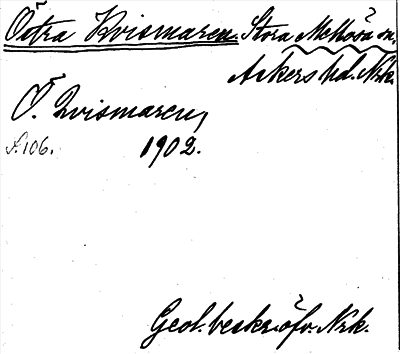 Östra Kvismaren. Stora Mellösa sn.
Askers hd. Nrk.
Ö. Qvismaren,
s. 106. 1902.
Geol. beskr. öfv. Nrk.